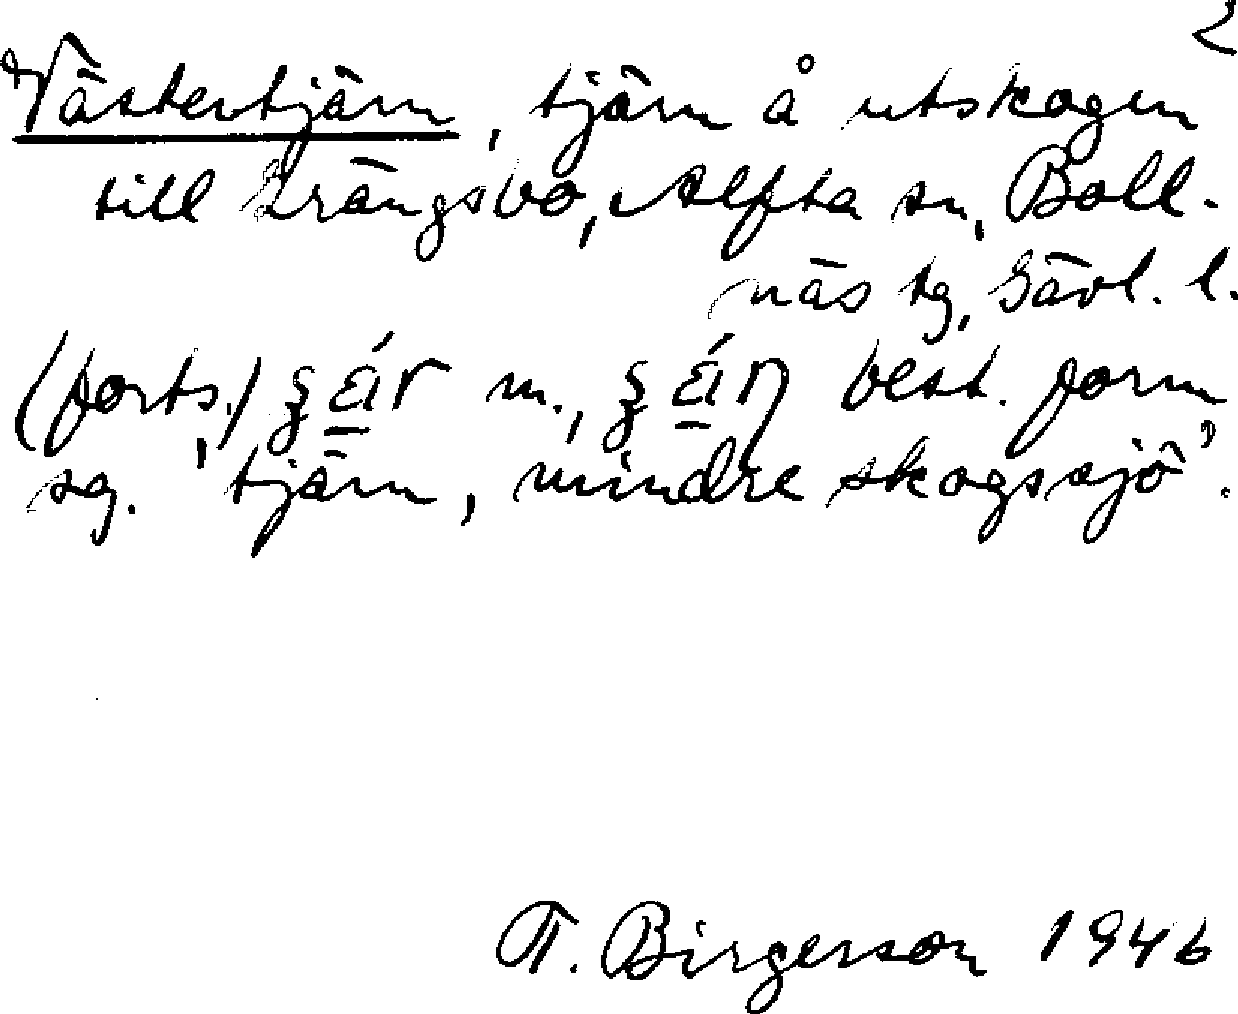 2
Västertjärn, tjärn å utskogen
till Grängsbo, Alfta sn, Boll-
näs tg, Gävl. l.
(forts.) m., best. form
sg. 'tjärn, mindre skogssjö'.
T. Birgerson 1946